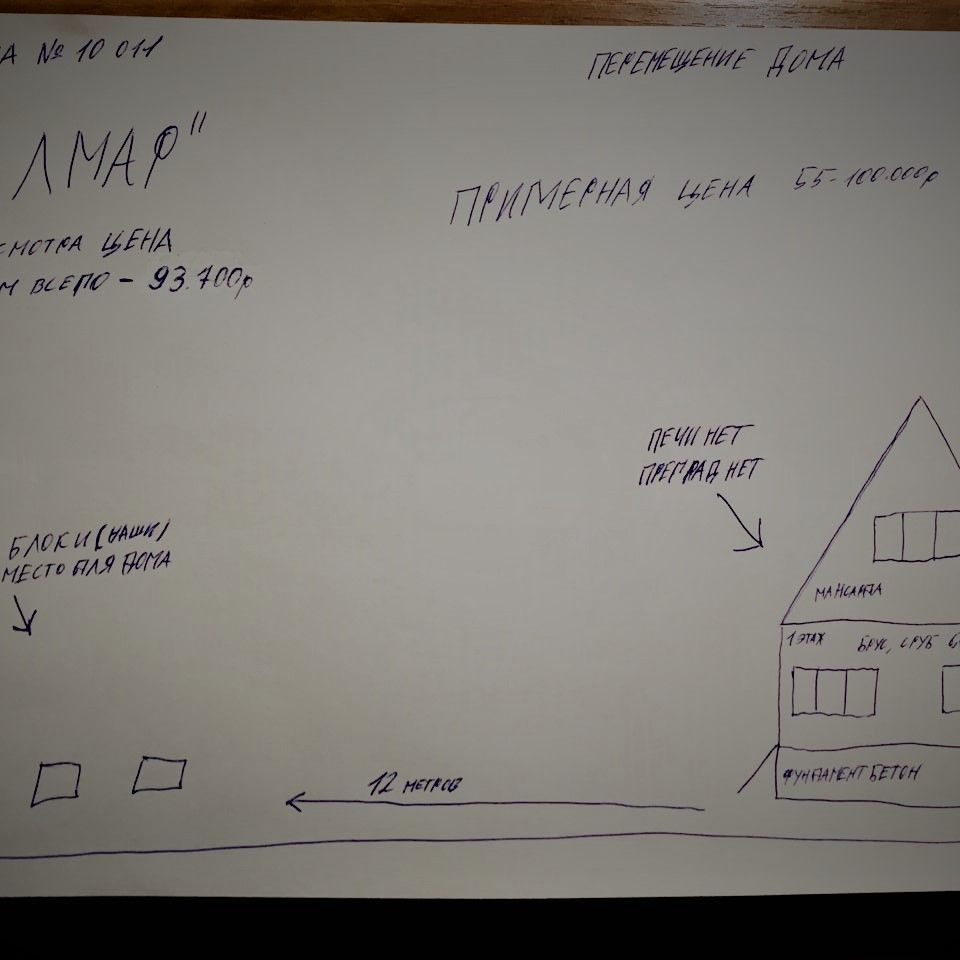 А № 10 011
ПЕРЕМЕЩЕНИЕ ДОМА
ЛМАР"
ПРИМЕРНАЯ ЦЕНА 55-100.000р
СМОТРА ЦЕНА
М ВСЕГО - 93.700р
ПЕЧИ НЕТ
ПРЕГРАД НЕТ
БЛОКИ (НАШИ)
МЕСТО ДЛЯ ДОМА
МАНСАРДА
1 ЭТАЖ БРУС, СРУБ
12 МЕТРОВ
ФУНДАМЕНТ БЕТОН